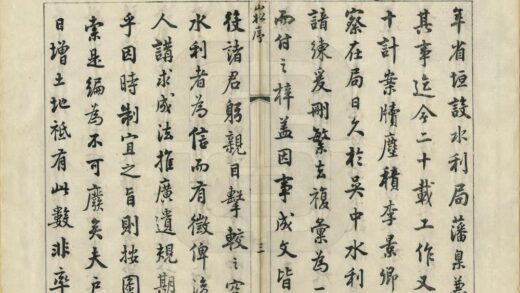 年省垣設水利局藩臬兼
其事迄今二十載工作又
十計案牘塵積李景卿
察在局日久於吳中水利
諳練爰刪繁去複彙為一
而付之梓蓋因事成文皆
序
三
役諸君躬親目擊較之空
水利者為信而有徵俾後
人講求成法推廣遺規期
乎因時制宜之旨則按圖
索是編為不可廢矣夫戶
日增土地祇有此數非率